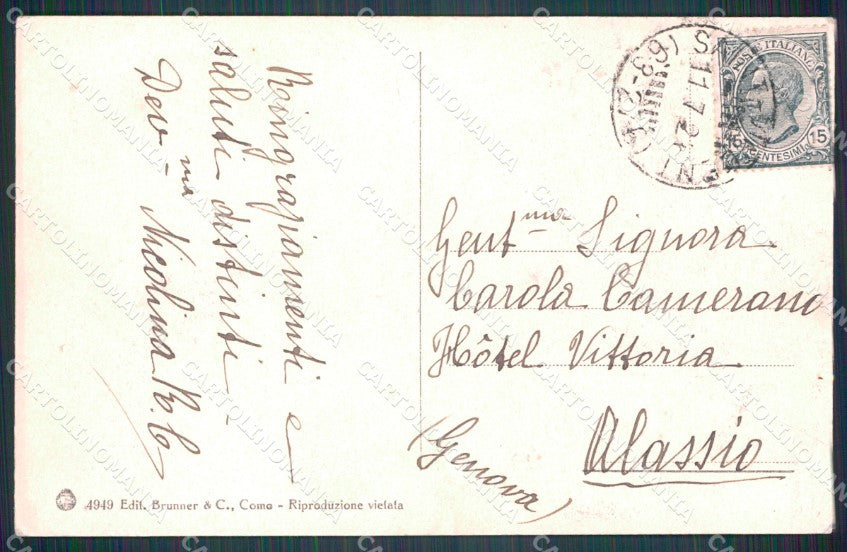 Ringraziamenti e
saluti distinti -
Dev - ma Nicolina R. C
POSTE ITALIANE
15
CENTESIMI
15
11. 7. 2
Gent ma Signora
Carola Camerano
Hôtel Vittoria
Alassio
(Genova)
4949 Edit. Brunner & C., Como - Riproduzione vietata
CARTOLINOMANIA